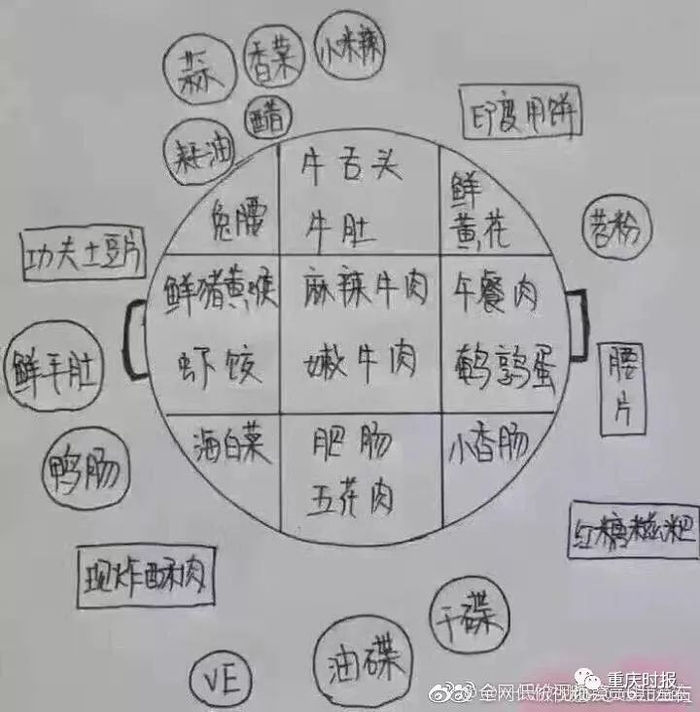 蒜
香菜
小米辣
醋
耗油
印度甩饼
牛舌头
牛肚
鲜
黄花
兔腰
苕粉
功夫土豆片
鲜猪黄喉
虾饺
麻辣牛肉
嫩牛肉
午餐肉
鹌鹑蛋
鲜毛肚
腰
片
鸭肠
海白菜
肥肠
五花肉
小香肠
红糖糍粑
现炸酥肉
干碟
油碟
VE
重庆时报